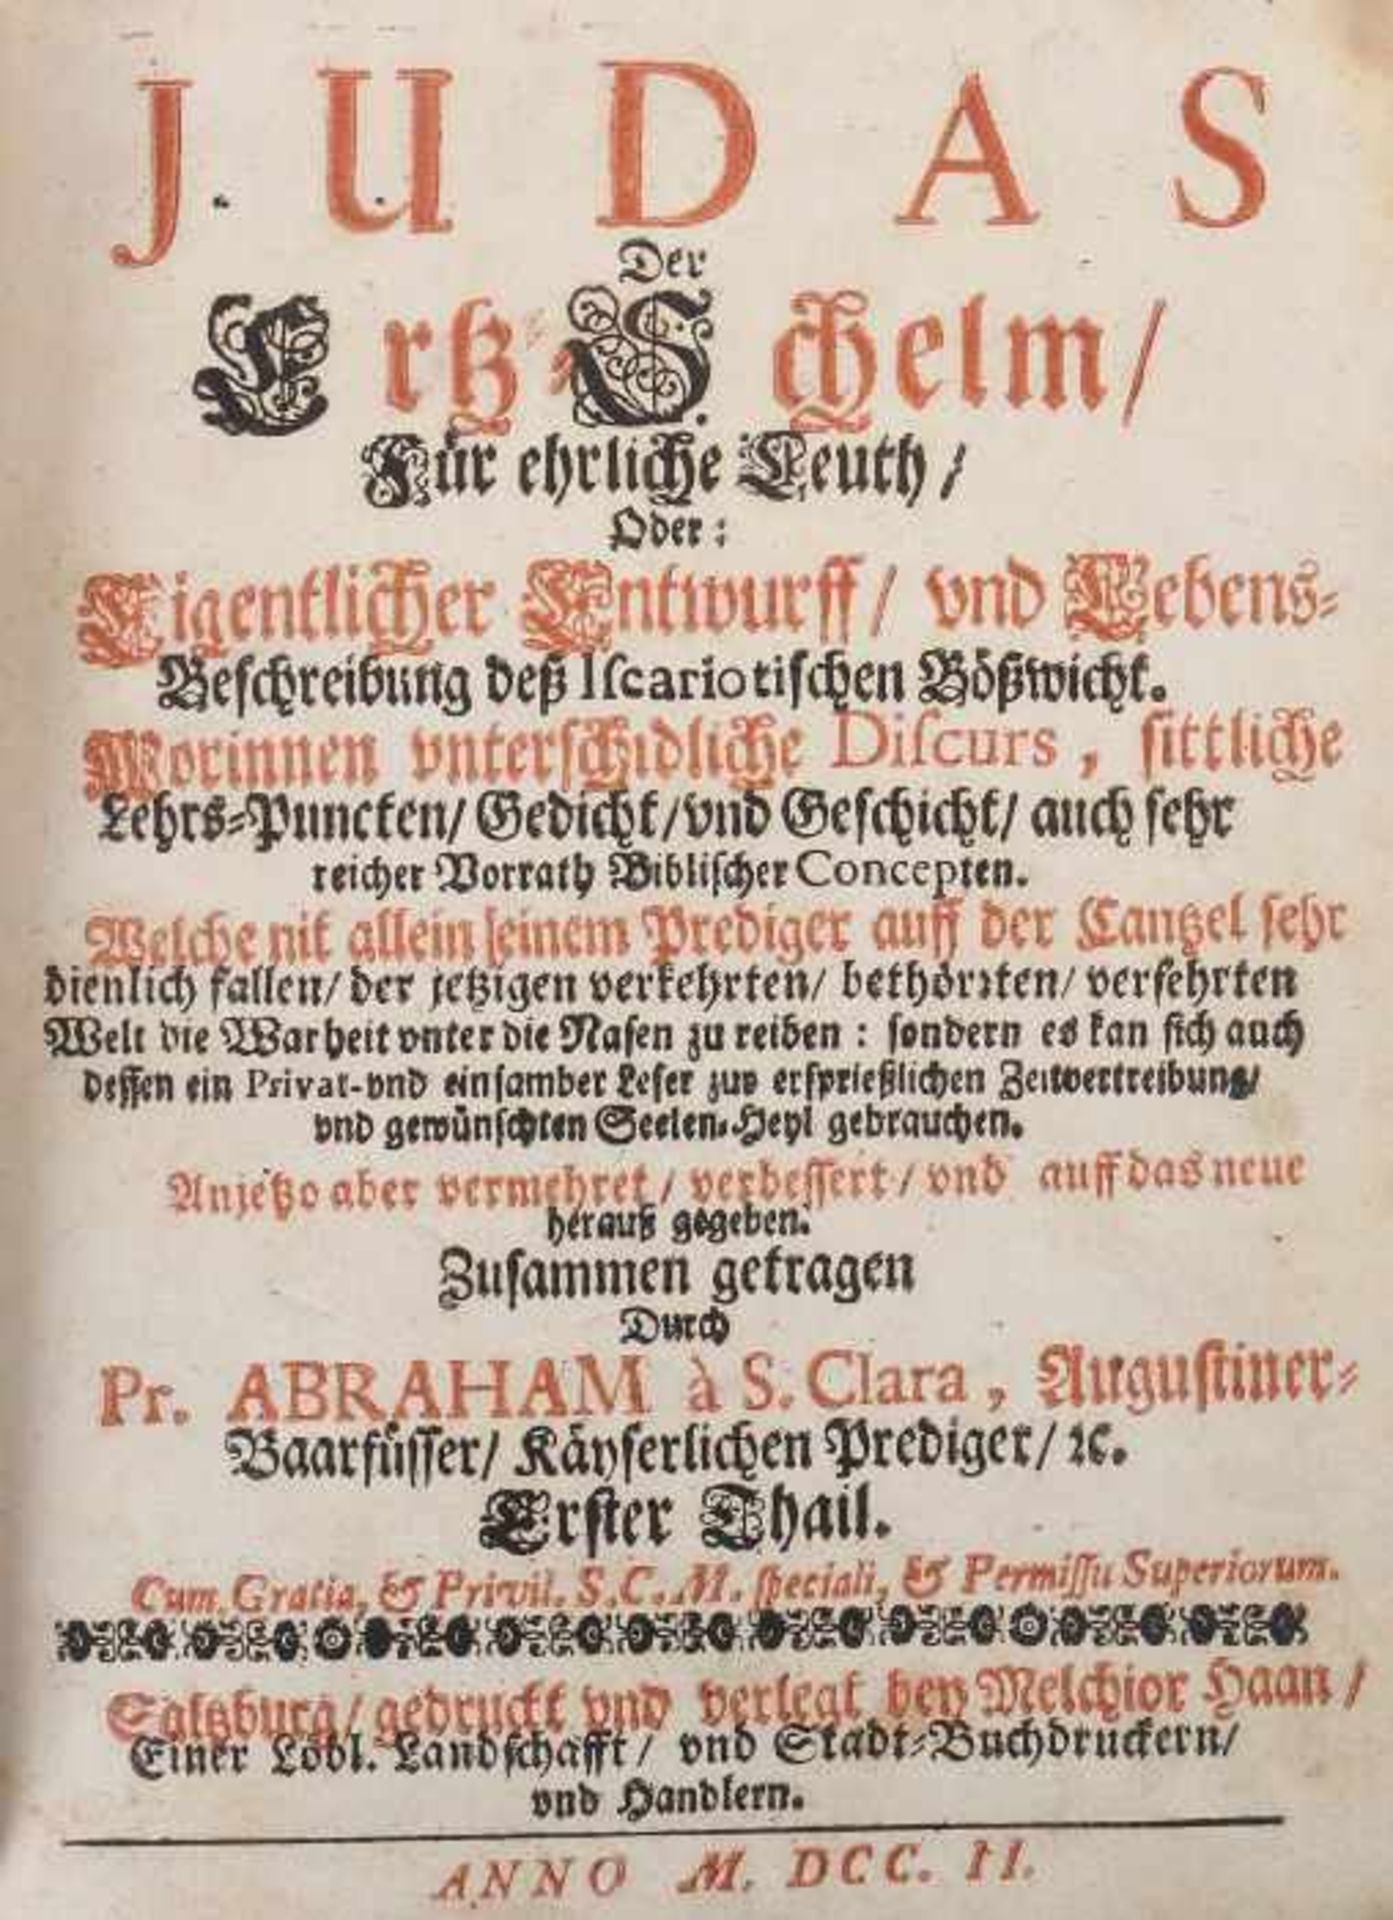 JUDAS
Der
Ertz-Schelm/
Für ehrliche Leuth/
Oder:
Eigentlicher Entwurff/ vnd Lebens-
Beschreibung deß Iſcariotiſchen Bößwicht.
Worinnen vnterſchidliche Diſcurs, ſittliche
Lehrs-Puncten/ Gedicht/ vnd Geſchicht/ auch ſehr
reicher Vorrath Bibliſcher Concepten.
Welche nit allein ſeinem Prediger auff der Cantzel ſehr
dienlich fallen/ der jetzigen verkehrten/ bethörꝛten/ verſehrten
Welt die Warheit vnter die Naſen zu reiben: ſondern es kan ſich auch
deſſen ein Privat- vnd einſamber Leſer zur erſprießlichen Zeitvertreibung/
vnd gewünſchten Seelen-Heyl gebrauchen.
Anjetzo aber vermehret/ verbeſſert/ vnd auff das neue
herauß gegeben.
Zuſammen getragen
Durch
Pr. ABRAHAM à S. Clara, Auguſtiner-
Baarfüſſer/ Käyſerlichen Prediger/ ꝛc.
Erſter Thail.
Cum Gratia, & Privil. S. C. M. ſpeciali, & Permiſſu Superiorum.
Saltzburg/ gedruckt vnd verlegt bey Melchior Haan/
Einer Löbl. Landſchafft/ vnd Stadt-Buchdruckern/
vnd Handlern.
ANNO M. DCC. II.